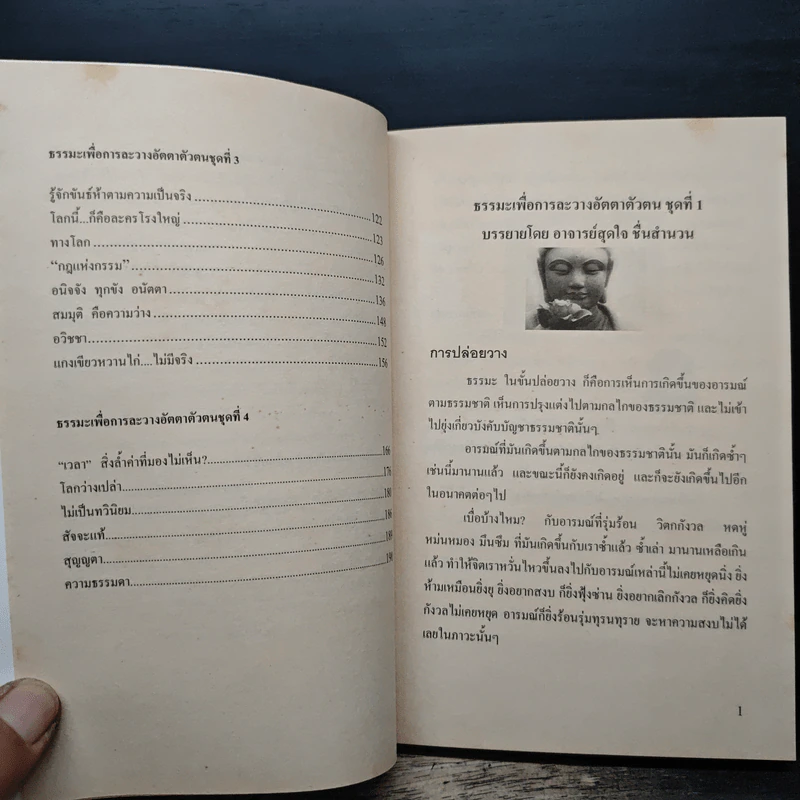 ธรรมะเพื่อการละวางอัตตาตัวตนชุดที่ 3
รู้จักขันธ์ห้าตามความเป็นจริง ........ 122
โลกนี้...ก็คือละครโรงใหญ่ ........ 123
ทางโลก ........ 126
“กฎแห่งกรรม” ........ 132
อนิจจัง ทุกขัง อนัตตา ........ 136
สมมุติ คือความว่าง ........ 148
อวิชชา ........ 152
แกงเขียวหวานไก่....ไม่มีจริง ........ 156
ธรรมะเพื่อการละวางอัตตาตัวตนชุดที่ 4
“เวลา” สิ่งล้ำค่าที่มองไม่เห็น? ........ 166
โลกว่างเปล่า ........ 176
ไม่เป็นทวินิยม ........ 180
สัจจะแท้ ........ 186
สุญญตา ........ 189
ความธรรมดา ........
ธรรมะเพื่อการละวางอัตตาตัวตน ชุดที่ 1
บรรยายโดย อาจารย์สุดใจ ชื่นสำนวน
การปล่อยวาง
ธรรมะ ในขั้นปล่อยวาง ก็คือการเห็นการเกิดขึ้นของอารมณ์
ตามธรรมชาติ เห็นการปรุงแต่งไปตามกลไกของธรรมชาติ และไม่เข้า
ไปยุ่งเกี่ยวบังคับบัญชาธรรมชาตินั้นๆ
อารมณ์ที่มันเกิดขึ้นตามกลไกของธรรมชาตินั้น มันก็เกิดซ้ำๆ
เช่นนี้มานานแล้ว และขณะนี้ก็ยังคงเกิดอยู่ และก็จะยังเกิดขึ้นไปอีก
ในอนาคตต่อๆไป
เบื่อบ้างไหม? กับอารมณ์ที่รุ่มร้อน วิตกกังวล หดหู่
หม่นหมอง มึนซึม ที่มันเกิดขึ้นกับเราซ้ำแล้ว ซ้ำเล่า มานานเหลือเกิน
แล้ว ทำให้จิตเราหวั่นไหวขึ้นลงไปกับอารมณ์เหล่านี้ไม่เคยหยุดนิ่ง ยิ่ง
ห้ามเหมือนยิ่งยุ ยิ่งอยากสงบ ก็ยิ่งฟุ้งซ่าน ยิ่งอยากเลิกกังวล ก็ยิ่งคิดยิ่ง
กังวลไม่เคยหยุด อารมณ์ก็ยิ่งร้อนรุ่มทุรนทุราย จะหาความสงบไม่ได้
เลยในภาวะนั้นๆ
1